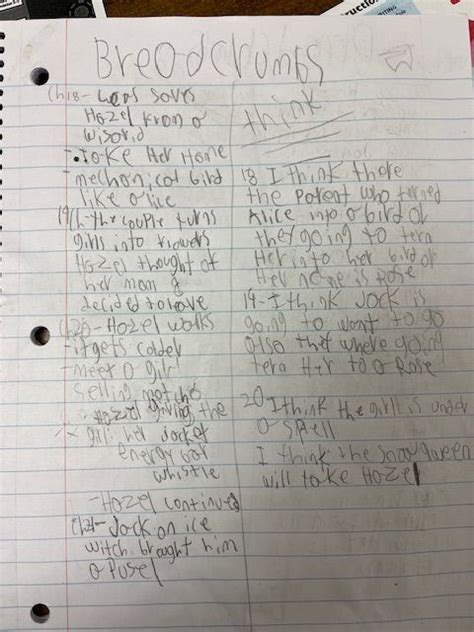 Breadcrumbs
Ch18- Lcas saves
Hazel from a
wisorid
- Take Her Home
- mechonical bird
like alice
19/h-the couple turns
girls into flowers
Hazel thought of
her mom &
decided to leave
Ch20- Hazel walks
- it gets colder
- meet a girl
selling matchs
Hazel giving the
girl her jacket
energy bar
whistle
- Hazel continued
Ch21- Jack on ice
witch brought him
a Pusel
think
18 I think there
the Parent who terned
Alice into a bird or
they going to tern
Her into her bird or
Her name is Rose
19- I think Jack is
going to want to go
also that where going
tern Her to a Rose
20 I think the girl is under
a spell
I think the snow queen
will take Hazel